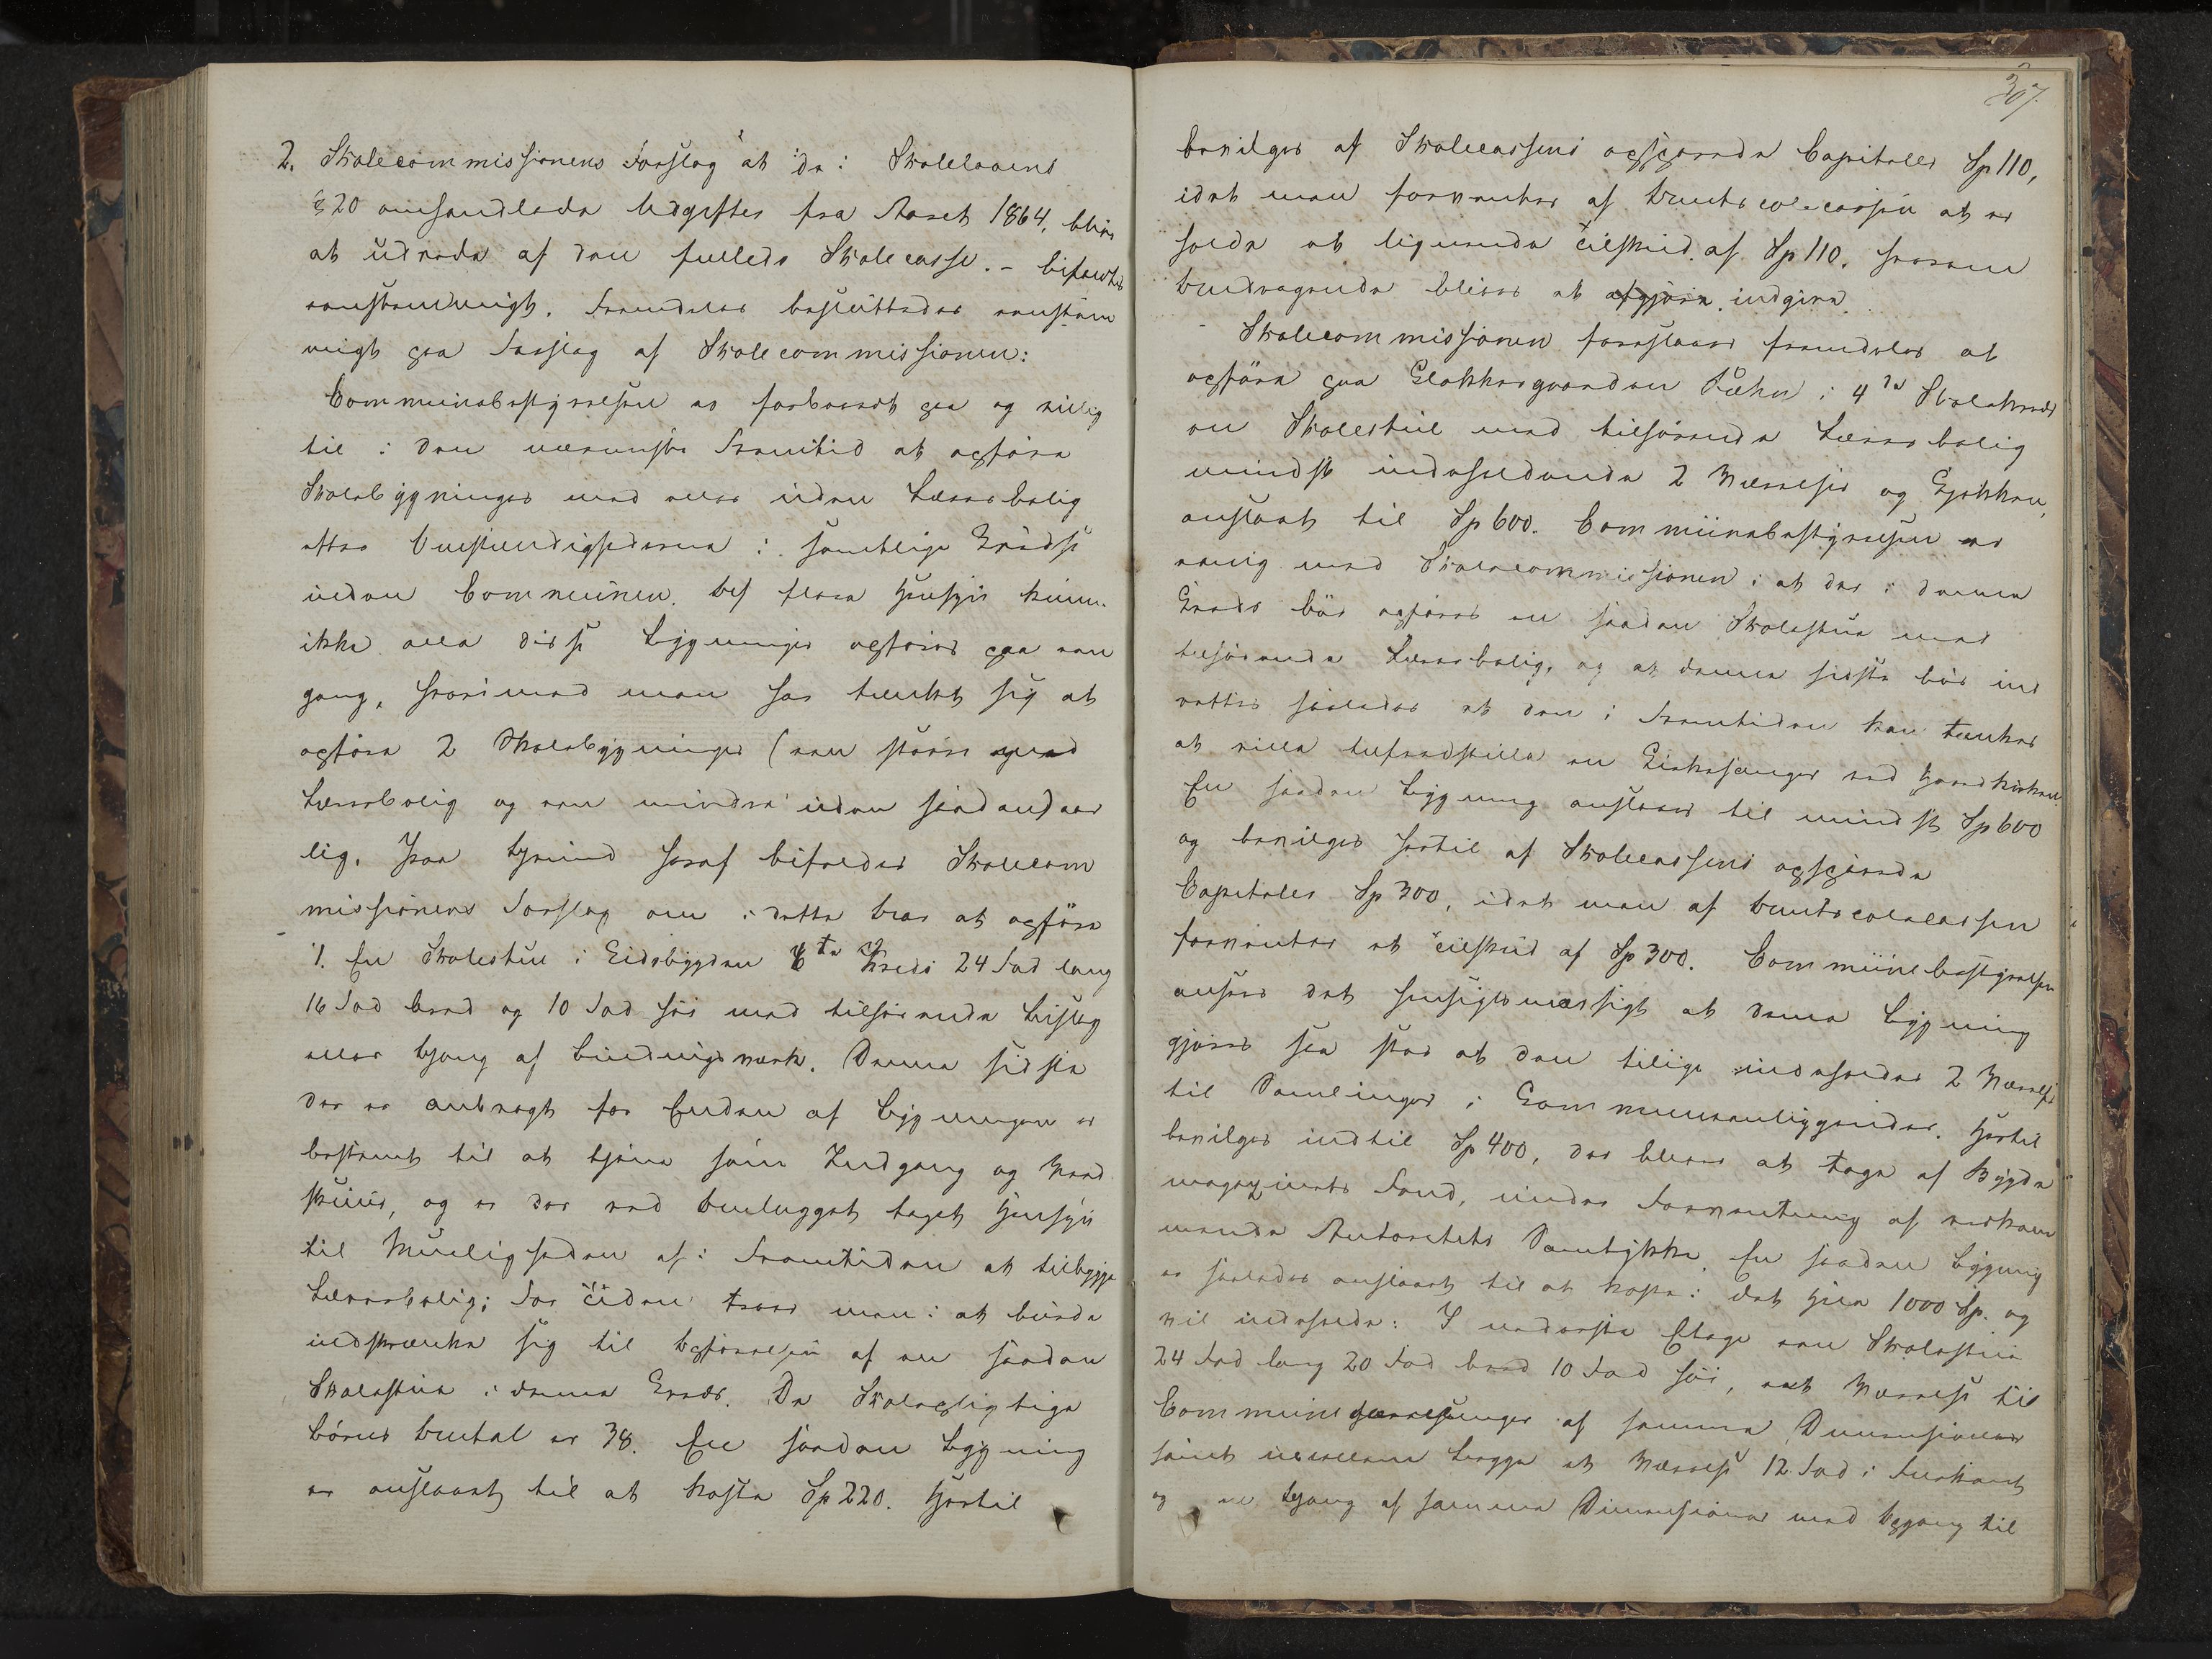 2. Skolecommissionens Forslag at de i Skolelovens
§ 20 omhandlede Udgifter fra Aaret 1864, blive
at udrede af den fælleds Skolecasse. – bifaldtes
eenstemmigt. Fremdeles besluttedes eenstem
migt paa Forslag af Skolecommissionen:
Communebestyrelsen er forberedt paa og villig
til i den nærmeste Fremtid at opföre
Skolebygninger med eller uden Lærerbolig
efter Omstændighederne i samtlige Kredse
inden Communen. Af flere Hensyn kunne
ikke alle disse Bygninger opföres paa een
gang, hvorimod man har tænkt sig at
opföre 2 Skolebygninger (een större med
Lærerbolig og een mindre uden saadan) aar
lig. Paa Grund heraf bifaldes Skolecom
missionens Forslag om i dette Aar at opföre
1. En Skolestue i Eidsbygden 6te Kreds 24 Fod lang
16 Fod bred og 10 Fod höi med tilhörende Bislag
eller Gang af Bindingsværk. Denne sidste
der er anbragt for Enden af Bygningen er
bestemt til at tjene som Indgang og Ved
skuur, og er der ved Anlægget taget Hensyn
til Muligheden af i Fremtiden at tilbygge
Lærerbolig; For Tiden troer man i at burde
indskrænke sig til Opförelsen af en saadan
Skolestue i denne Kreds. De Skolepligtige
Börns Antal er 38. En saadan Bygning
er anslaaet til at koste Sp 220. Hertil
307.
bevilges af Skolecassens opsparede Capitaler Sp 110,
idet man forventer af Amtsskolecassen at er
holde et lignende Tilskud af Sp 110. hvorom
Andragende bliver at afgjöre. indgive.
Skolecommissionen foreslaaer fremdeles at
opföre paa Klokkergaarden Sæhn i 4de Skolekreds
en Skolestue med tilhörende Lærerbolig
mindst indeholdende 2 Værelser og Kjökken,
anslaaet til Sp 600. Communebestyrelsen er
eenig med Skolecommissionen i at der i denne
Kreds bör opföres en saadan Skolestue med
tilhörende Lærerbolig, og at denne sidste bör ind
rettes saaledes at den i Fremtiden kan tænkes
at ville tilfredsstille en Kirkesanger ved Hovedkirken
En saadan Bygning anslaaes til mindst Sp 600
og bevilges hertil af Skolecassens opsparede
Capitaler Sp 300, idet man af Amtsskolecassen
forventer et Tilskud af Sp 300. Communebestyrelsen
anseer det hensigtsmæssigt at denne Bygning
gjöres saa stor at den tillige indeholder 2 Værelser
til Samlinger i Communeanliggender. Hertil
bevilges indtil Sp 400, der bliver at tage af Bygde
magazinets Fond, under Forventning af vedkom
mende Autoritets Samtykke. En saadan Bygning
er saaledes anslaaet til at koste i det Hele 1000 Sp. og
vil indeholde: I nederste Etage een Skolestue
24 Fod lang 20 Fod bred 10 Fod höi, eet Værelse til
Commune af samme Dimensioner
samt imellem begge et Værelse 12 Fod i Fiirkant
og en Gang af samme Dimensioner med Opgang til